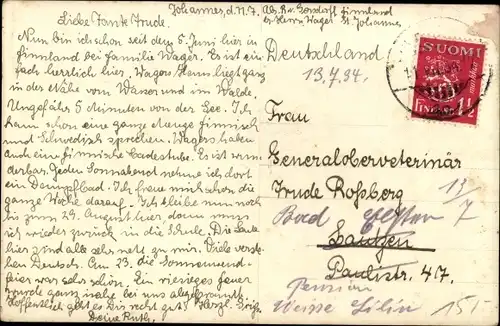 Johannes, d. 11.7.
Liebe Tante Trude.
Nun bin ich schon seit dem 5. Juni hier in
Finnland bei Familie Wager. Es ist ein-
fach herrlich hier. Wagers Haus liegt ganz
in der Nähe vom Wasser und im Walde.
Ungefähr 5 Minuten von der See. Ich
kann schon eine ganze Menge finnisch
und schwedisch sprechen. Wagers haben
auch eine finnische Badestube. Es ist wun-
derbar. Jeden Sonnabend nehme ich dort
ein Dampfbad. Ich freue mich schon die
ganze Woche darauf. Ich bleibe nun noch
bis zum 29. August hier, dann muss
ich wieder zurück in die Schule. Die Leute
hier sind alle sehr nett zu mir. Viele verste-
hen Deutsch. Am 23. die Sonnenwend-
feier war sehr schön. Ein riesiges Feuer
wurde ganz nahe bei uns abgebrannt
Hoffentlich geht es Dir recht gut? Herzl. Grüße
Deine Ruth.
Abs. R. v. Gondorf Finnland
b. Herrn Wager St. Johannes
Deutschland
13.7.34.
SUOMI
FINLAND 1½
Frau
Generaloberveterinär
Trude Roßberg
Bad
13/7
Bautzen
Paulistr. 47.
Pension
Weisse Lilie 15/-